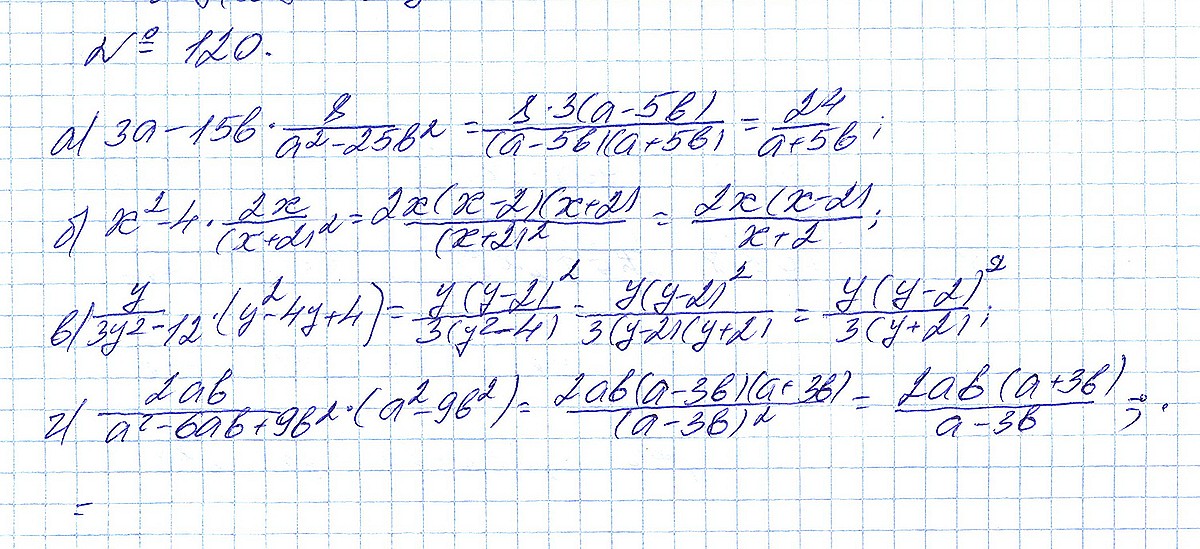 № 120.
а) 3a - 15b · 8/(a² - 25b²) = 8·3(a - 5b)/((a - 5b)(a + 5b)) = 24/(a + 5b);
б) x² - 4 · 2x/(x + 2)² = 2x(x - 2)(x + 2)/(x + 2)² = 2x(x - 2)/(x + 2);
в) y/(3y² - 12) · (y² - 4y + 4) = y(y - 2)²/(3(y² - 4)) = y(y - 2)²/(3(y - 2)(y + 2)) = y(y - 2)²/(3(y + 2));
г) 2ab/(a² - 6ab + 9b²) · (a² - 9b²) = 2ab(a - 3b)(a + 3b)/(a - 3b)² = 2ab(a + 3b)/(a - 3b);.
=